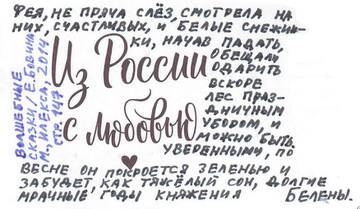 ФЕЯ, НЕ ПРЯЧА СЛЁЗ, СМОТРЕЛА НА
НИХ, СЧАСТЛИВЫХ, И БЕЛЫЕ СНЕЖИН-
КИ, НАЧАВ ПАДАТЬ,
ОБЕЩАЛИ
ОДАРИТЬ
ВСКОРЕ
ЛЕС ПРАЗ-
ДНИЧНЫМ
УБОРОМ, И
МОЖНО БЫТЬ
УВЕРЕННЫМИ, ПО
ВЕСНЕ ОН ПОКРОЕТСЯ ЗЕЛЕНЬЮ И
ЗАБУДЕТ, КАК ТЯЖЁЛЫЙ СОН, ДОЛГИЕ
МРАЧНЫЕ ГОДЫ КНЯЖЕНИЯ БЕЛЕНЫ.
Из России
с любовью
ВОЛШЕБНЫЕ
СКАЗКИ / Е. БОВИНА
М., АЛЕКСА. 2014
стр 147